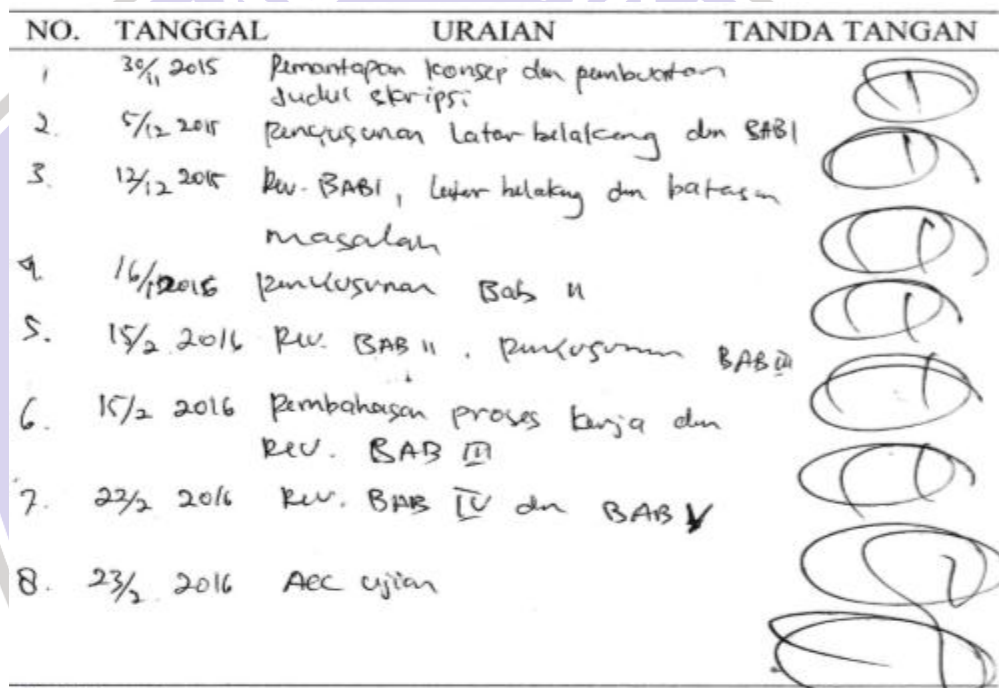 NO. TANGGAL URAIAN TANDA TANGAN
1 30/11 2015 Pemantapan konsep dan pembuatan
Judul skripsi
2. 5/12 2015 penyusunan Latar belakang dan BAB I
3. 12/12 2015 Rev. BAB I, Latar belakang dan batasan
masalah
4. 16/12 2015 penyusunan Bab II
5. 15/2 2016 Rev. BAB II. penyusunan BAB III
6. 15/2 2016 pembahasan proses kerja dan
Rev. BAB III
7. 22/2 2016 Rev. BAB IV dan BAB V
8. 23/2 2016 Acc ujian